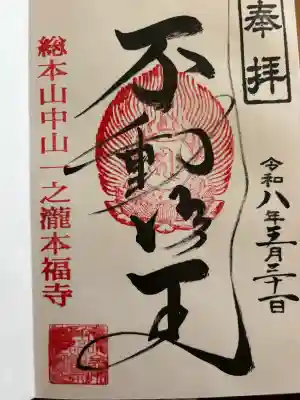 奉拝
令和八年五月三十一日
不動明王
総本山中山一之瀧本福寺